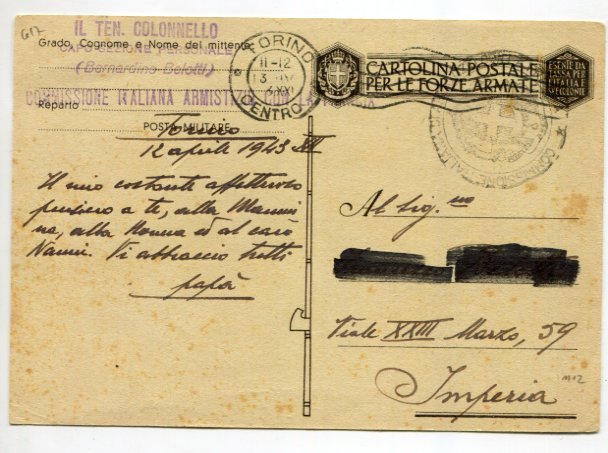 G17
IL TEN. COLONNELLO
CAPO SEZIONE PERSONALE
Grado, Cognome e Nome del mittente
(Bernardino Belotti)
Reparto
COMMISSIONE ITALIANA ARMISTIZIO CON LA FRANCIA
POSTA MILITARE
TORINO
11-12
13
XXI
CENTRO
CARTOLINA POSTALE
PER LE FORZE ARMATE
ESENTE DA
TASSA PER
L'ITALIA E
SUE COLONIE
COMMISSIONE ITALIANA
Torino
12 aprile 1943 XXI
Il mio costante affettuoso
pensiero a te, alla Mammi
na, alla Nonna ed al caro
Nanni. Vi abbraccio tutti
papà
Al Sig.no
Viale XXIII Marzo, 59
Imperia
M12